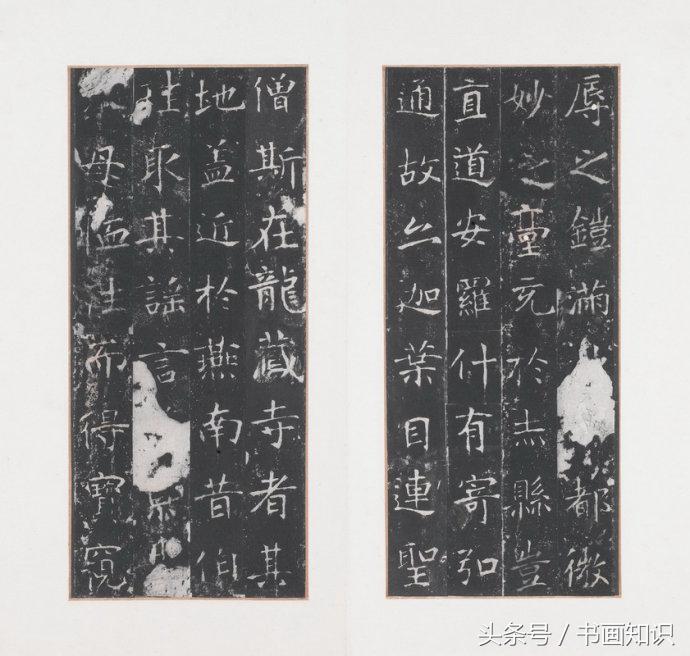 辱之鎧滿都微
妙之臺充於赤縣豈
直道安羅什有寄弘
通故亦迦葉目連聖
僧斯在龍藏寺者其
地盖近於燕南昔伯
珪取其謠言
母恤往而得寶窺
头条号 / 书画知识